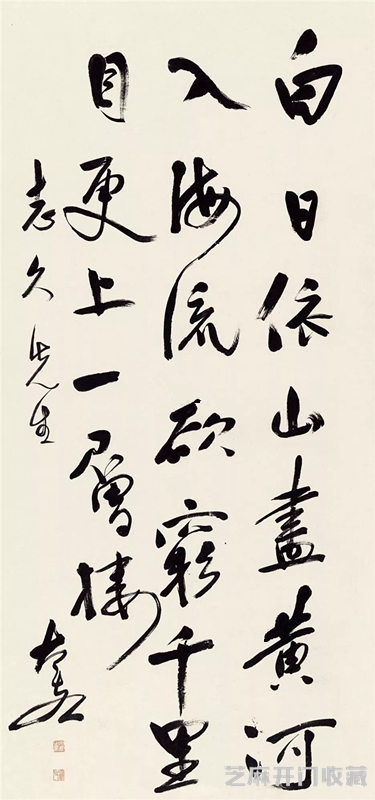 白日依山盡黄河
入海流欲窮千里
目更上一層樓
志久先生
芝麻开门收藏